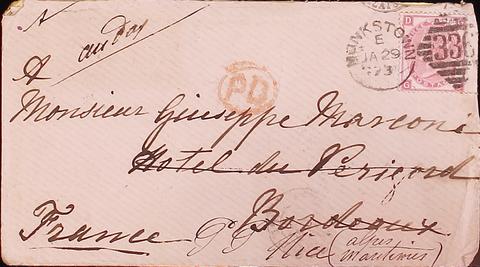 MONKSTOWN
E
JA 29
73
336
D
G
A
PD
Monsieur Giuseppe Marconi
Hotel du Perigord
Bordeaux
France Nice (alpes
Maritimes)